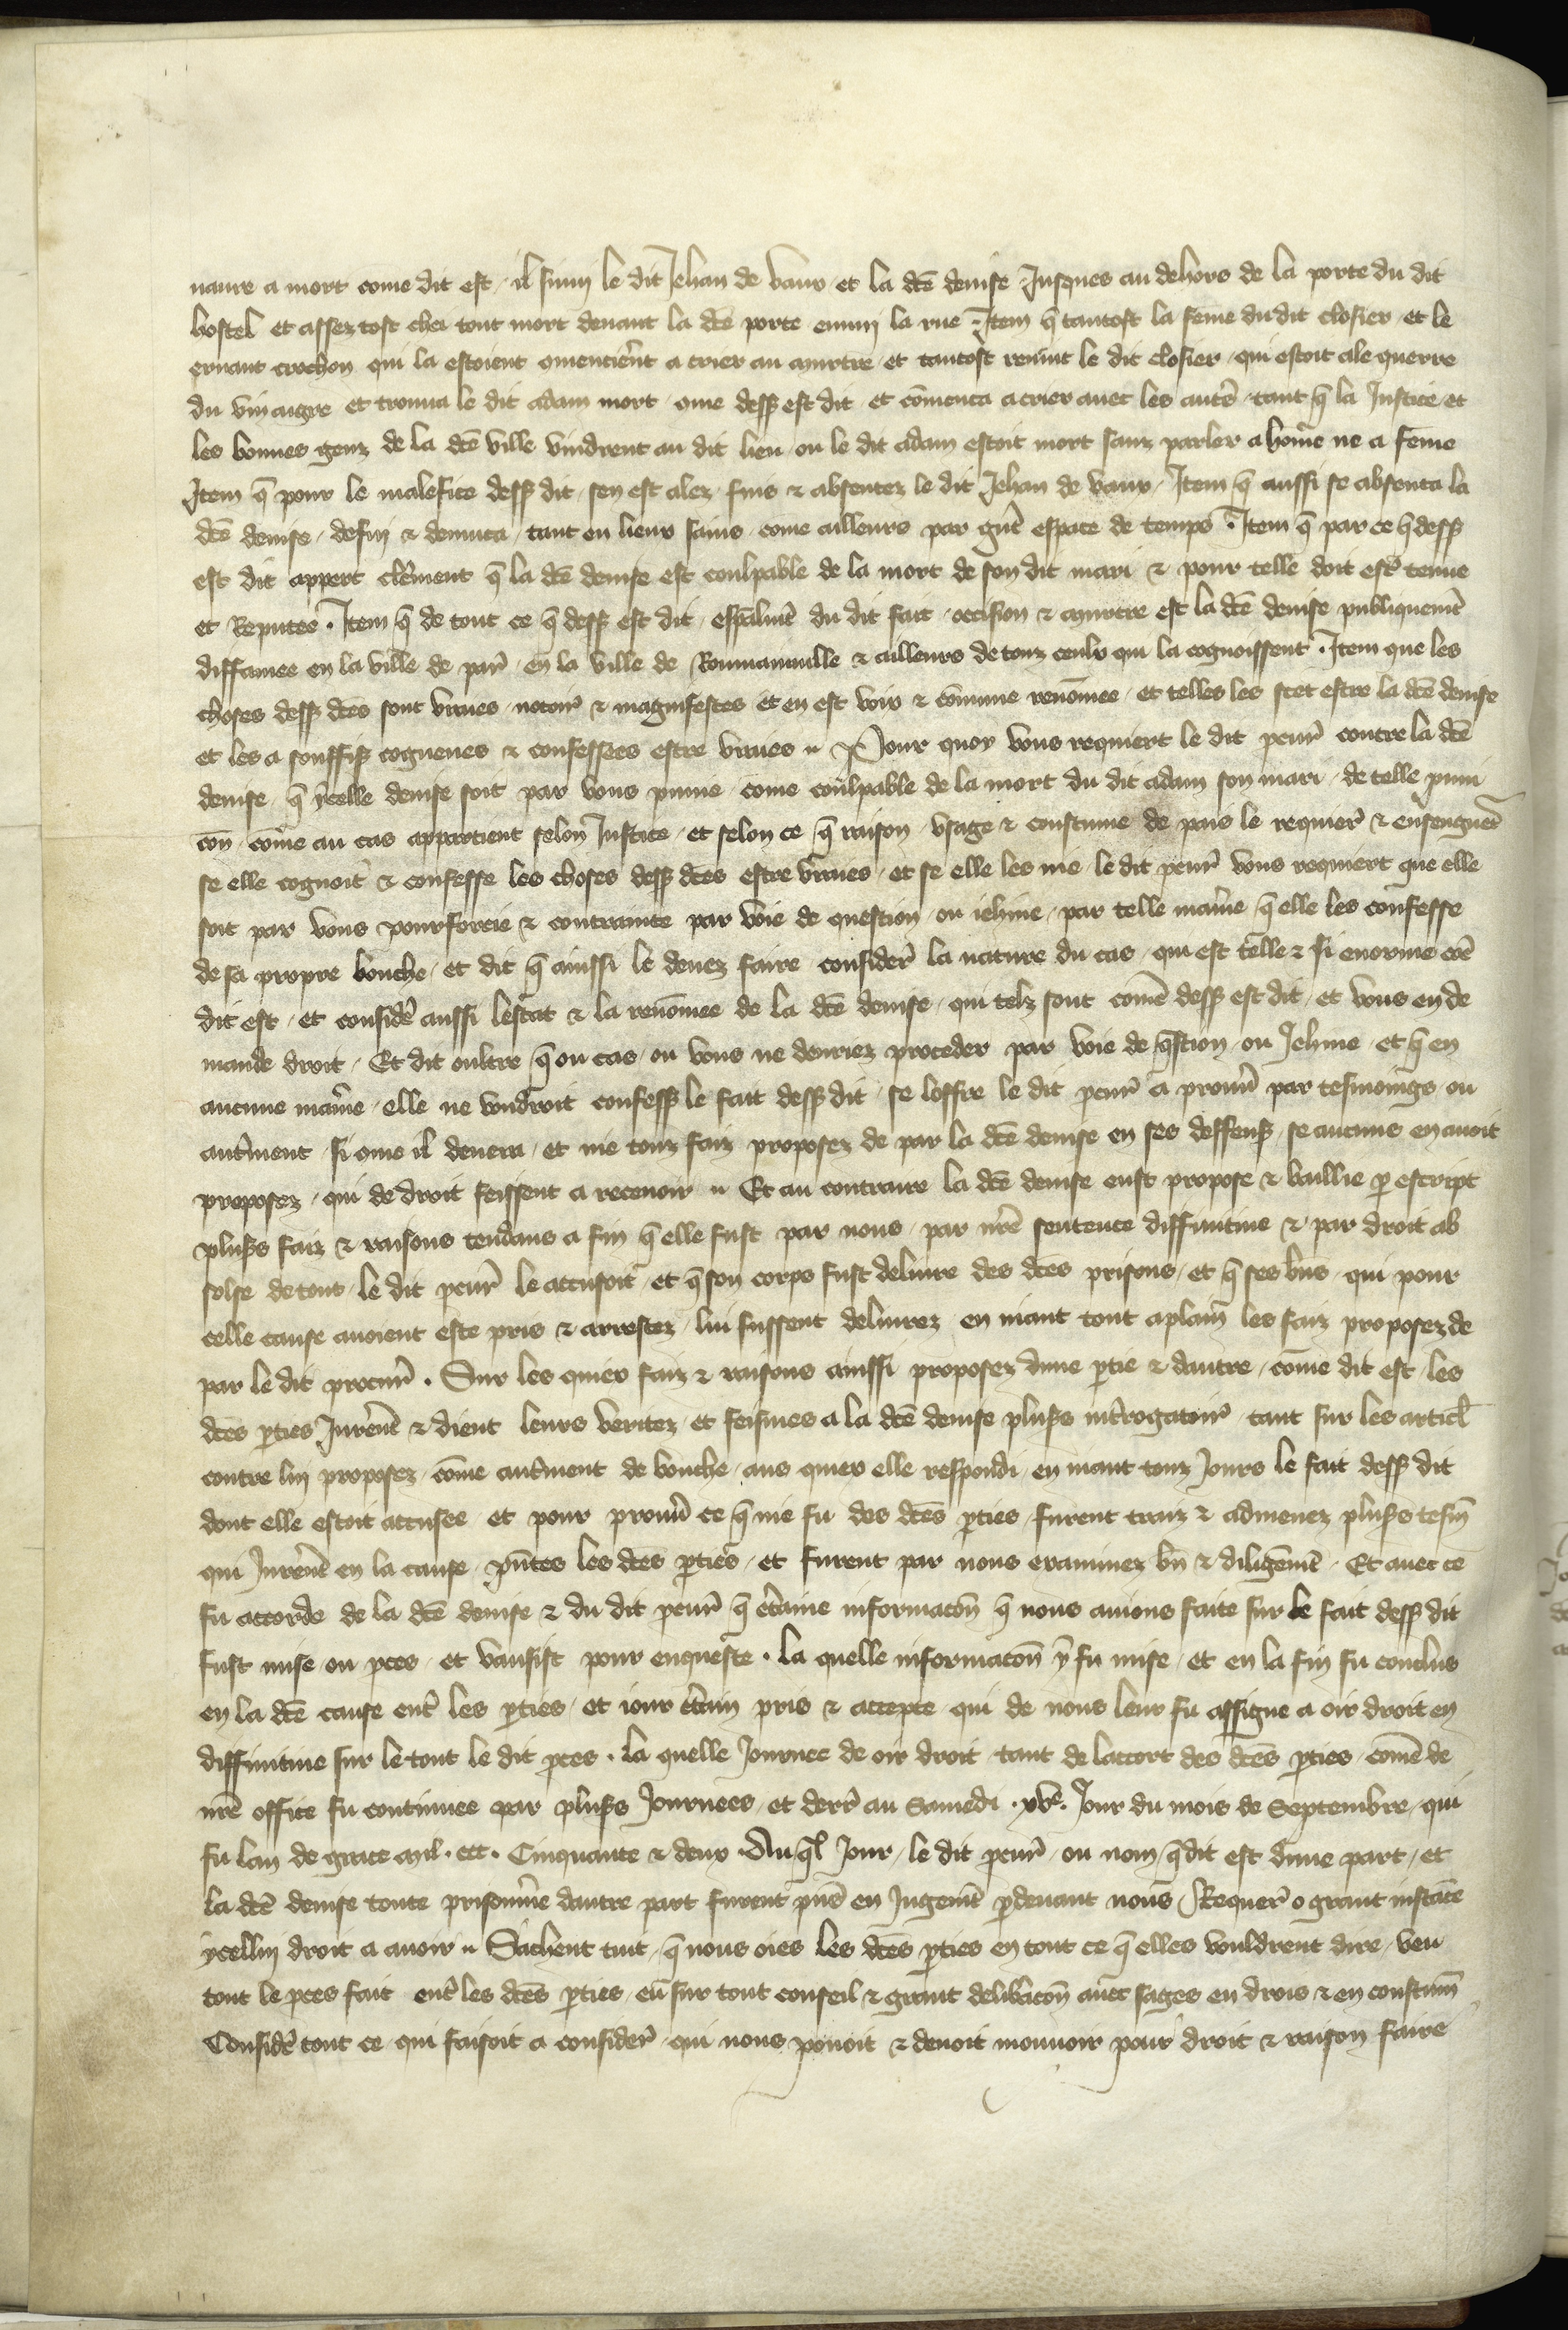 navre a mort come dit est, il suivi le dit Jehan de vaux et la dcē denise Jusques au dehors de la porte du dit
hostel et assez tost chei tout mort devant la dcē porte enmi la rue. Item q̄ tantost la fēme du dit closier et le
ernaut crochon qui la estoient 9mencier̄nt a crier au murtre et tantost revint le dit closier qui estoit ale querre
du vin aigre et trouva le dit adam mort 9me dess9 est dit et cōmenca a crier avec les autr̄s tant q̄ la Justice et
les bonnes genz de la dcē ville vindrent au dit lieu ou le dit adam estoit mort sanz parler a hōme ne a fēme
Item q̄ pour le malefice dess9 dit sen est alez fuis & absentez le dit Jehan de vaux. Item q̄ aussi se absenta la
dcē denise, desfui & demuca tant en lieux sains come ailleurs par gn̄t espace de temps. Item q̄ par ce q̄ dess9
est dit appert clēment q̄ la dcē denise est coulpable de la mort de son dit mari & pour telle doit estr̄ tenue
et Reputee. Item q̄ de tout ce q̄ dess9 est dit, esp̄almēt du dit fait occision & murtre est la dcē denise publiquemēt
diffamee en la ville de par̄ en la ville de Roumainville & ailleurs de touz ceulx qui la cognoissent. Item que les
choses dess9 dcēs sont vraies notoir̄ & magnifestes et en est voix & cōmune renōmee et telles les scet estre la dcē denise
et les a souffis9 cogneues & confessees estre vraies. Pour quoy vous requiert le dit p̄cur̄ contre la dcē
denise q̄ ycelle denise soit par vous punie come coulpable de la mort du dit adam son mari de telle puni
cōn cōme au cas appartient selon Justice et selon ce q̄ raison usage & coustume de pais le requier̄ & enseignēt
se elle cognoit & confesse les choses dess9 dcēs estre vraies et se elle les nie le dit p̄cur̄ vous requiert que elle
soit par vous pourforcie & contrainte par voie de question ou iehine par telle manīe q̄ elle les confesse
de sa propre bouche et dit q̄ ainssi le devez faire consider̄ la nature du cas qui est telle & si enorme cōe
dit est et consider̄ aussi lestat & la renōmee de la dcē denise qui telz sont comē dess9 est dit et vous en de
mande droit. Et dit oultre q̄ ou cas ou vous ne devriez proceder par voie de q̄stion ou Jehine et q̄ en
aucune manīe elle ne voudroit confess9 le fait dess9 dit se loffre le dit p̄cur̄ a prouv̄ par tesmoings ou
autrm̄ent si 9me il devera et nie touz faiz proposez de par la dcē denise en ses deffens9 se aucuns en avoit
proposez qui de droit feissent a recevoir. Et au contraire la dcē denise eust propose & baillie p̱ escript
plus9s faiz & raisons tendans a fin q̄ elle fust par nous par nr̄e sentence diffinitive & par droit ab
solse de tout le dit p̄cur̄ le accusoit et q̄ son corps fust delivre des dcēs prisons et q̄ ses bn̄s qui pour
celle cause avoient este pris & arrestez lui fussent delivrez en niant tout aplain̄ les faiz proposez de
par le dit procur̄. Sur les quiex faiz & raisons ainssi proposez dune p̱tie & dautre come dit est les
dcēs p̱ties Jurerēt & dient leurs veritez et feismes a la dcē denise plus9s int̄rogatoir̄ tant sur les articl̄
contre lui proposez cōme autrm̄ent de bouche aus quiex elle respondi en niant touz Jours le fait dess9 dit
dont elle estoit accusee et pour prouv̄ ce q̄ nie fu des dcēs p̱ties furent traiz & admenez plus9s tesm̄
qui Jurerēt en la cause p̄ntes les dcēs p̱ties et furent par nous examinez bn̄ & diligēmēt. Et avec ce
fu accorde de la dcē denise & du dit p̄cur̄ q̄ cer̄taine informacōn q̄ nous avions faite sur le fait dess9 dit
fust mise ou p̱ces et vausist pour enqueste. la quelle informacōn y fu mise et en la fin fu conclus
en la dcē cause entr̄ les p̱ties et iour cer̄tain pris & accepte qui de nous leur fu assigne a oir droit en
diffinitive sur le tout le dit p̱ces. la quelle Journee de oir droit tant de laccort des dcēs p̱ties comē de
nr̄e office fu continuee par plus9s Journees et derr̄ au Samedi .xvᵉ. Jour du mois de Septembre qui
fu lan de grace mil. ccc. Cinquante & deux. Au q̄l Jour le dit p̄cur̄ ou nom q̄ dit est dune part et
la dcē denise toute prisonnīe dautre part furent p̄ns en Jugemēt p̱devant nous Requer̄ o grant instāce
ycellui droit a avoir. Sachent tuit q̄ nous oies les dcēs p̱ties en tout ce q̄ elles vouldrent dire veu
tout le p̱ces fait entr̄ les dcēs p̱ties eu sur tout conseil & grant delibacōn avec sages en drois & en coustum̄
Consider̄ tout ce qui faisoit a consider̄ qui nous povoit & devoit mouvoir pour droit & raison faire